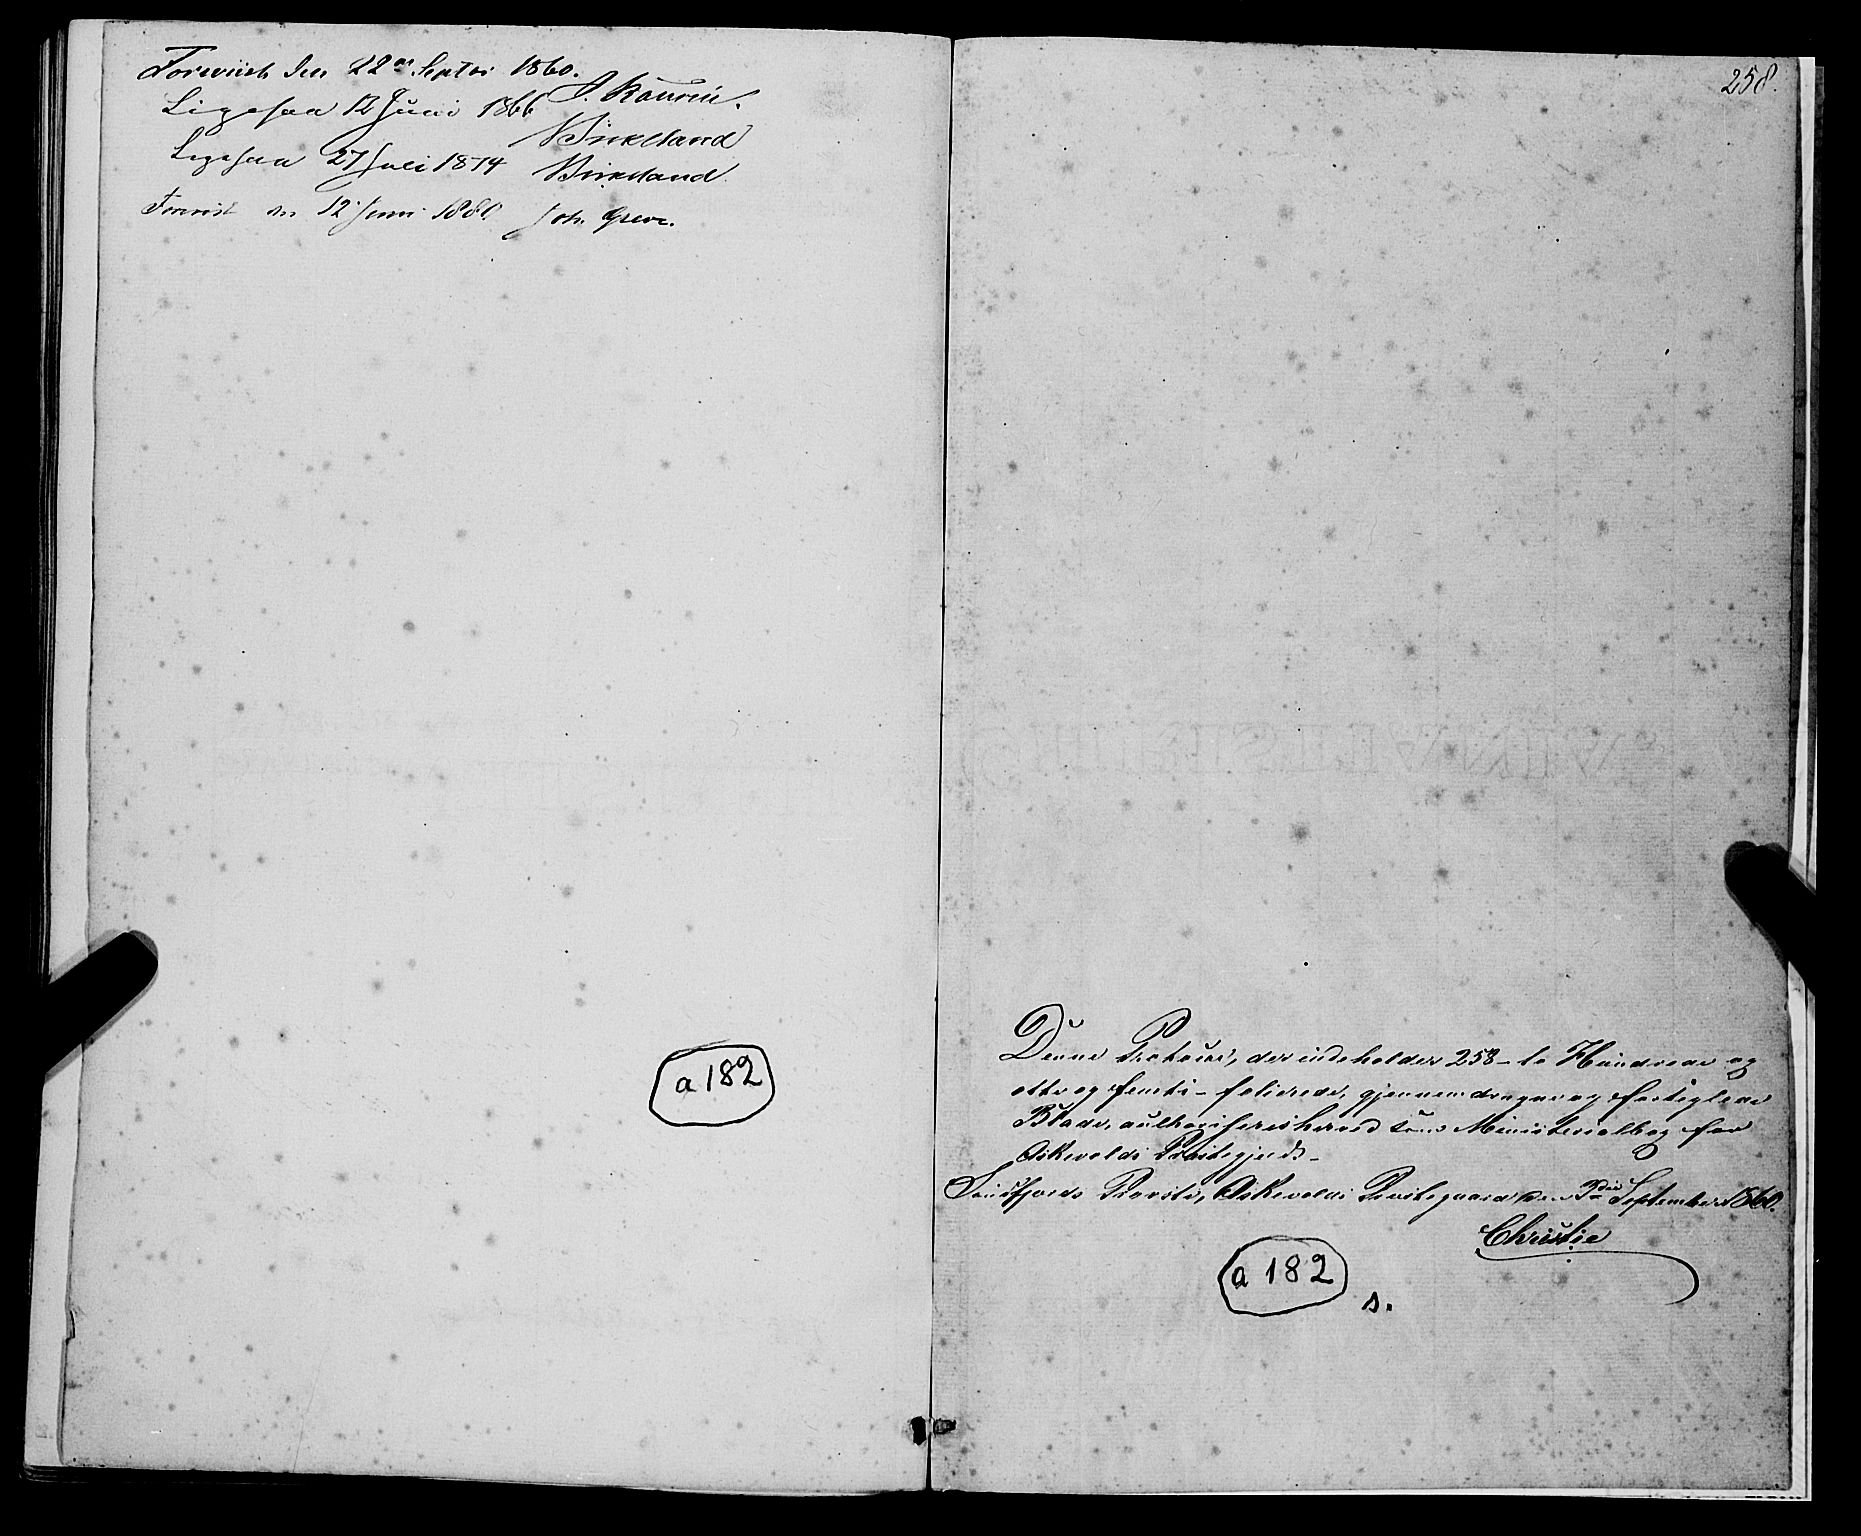 Foreviist den 22de Septbr 1860.
J. Kaurin.
Ligesaa 12 Juni 1866
NBirkeland
Ligesaa 27 Juli 1874 NBirkeland.
Forevist den 12 Juni 1880. Joh. Greve.
a 182
258.
Denne Protocol, der indeholder 258 – to Hundrede og
otte og femti – folierede, gjennemdragne og forseglede
Blade, authoriseres herved som Ministerialbog for
Askevolds Præstegjeld. –
Søndfjords Provsti, Askevolds Præstegaard den 3die September 1860.
Christie
a 182
s.